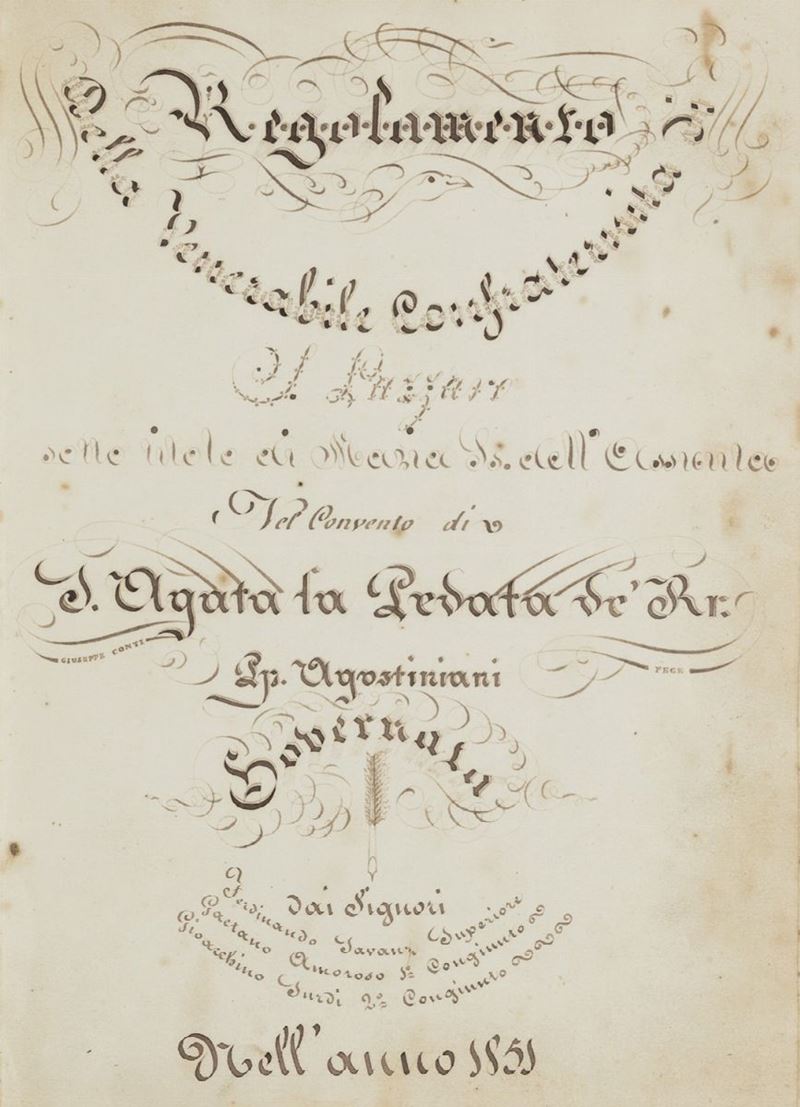 Regolamento
Della Venerabile Confraternita
S. Lazzaro
sotto titolo di Maria Ss. dell'Assunta
Nel Convento di
S. Agata la Pedata de' Rr:
GIUSEPPE CONTI
FECE
Pp. Agostiniani
Governata
dai Signori
Ferdinando Superiore
Gaetano Amoroso 1º Congiunto
Gioacchino Surdi 2º Congiunto
Nell'anno 1851